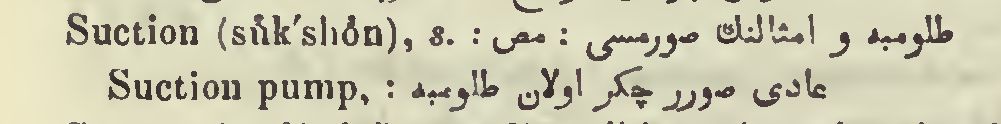 Suction (sŭk′shŏn), s. : مص : طلومبه و امثالنك صورمسی
Suction pump, : عادی صورر چكر اولان طلومبه